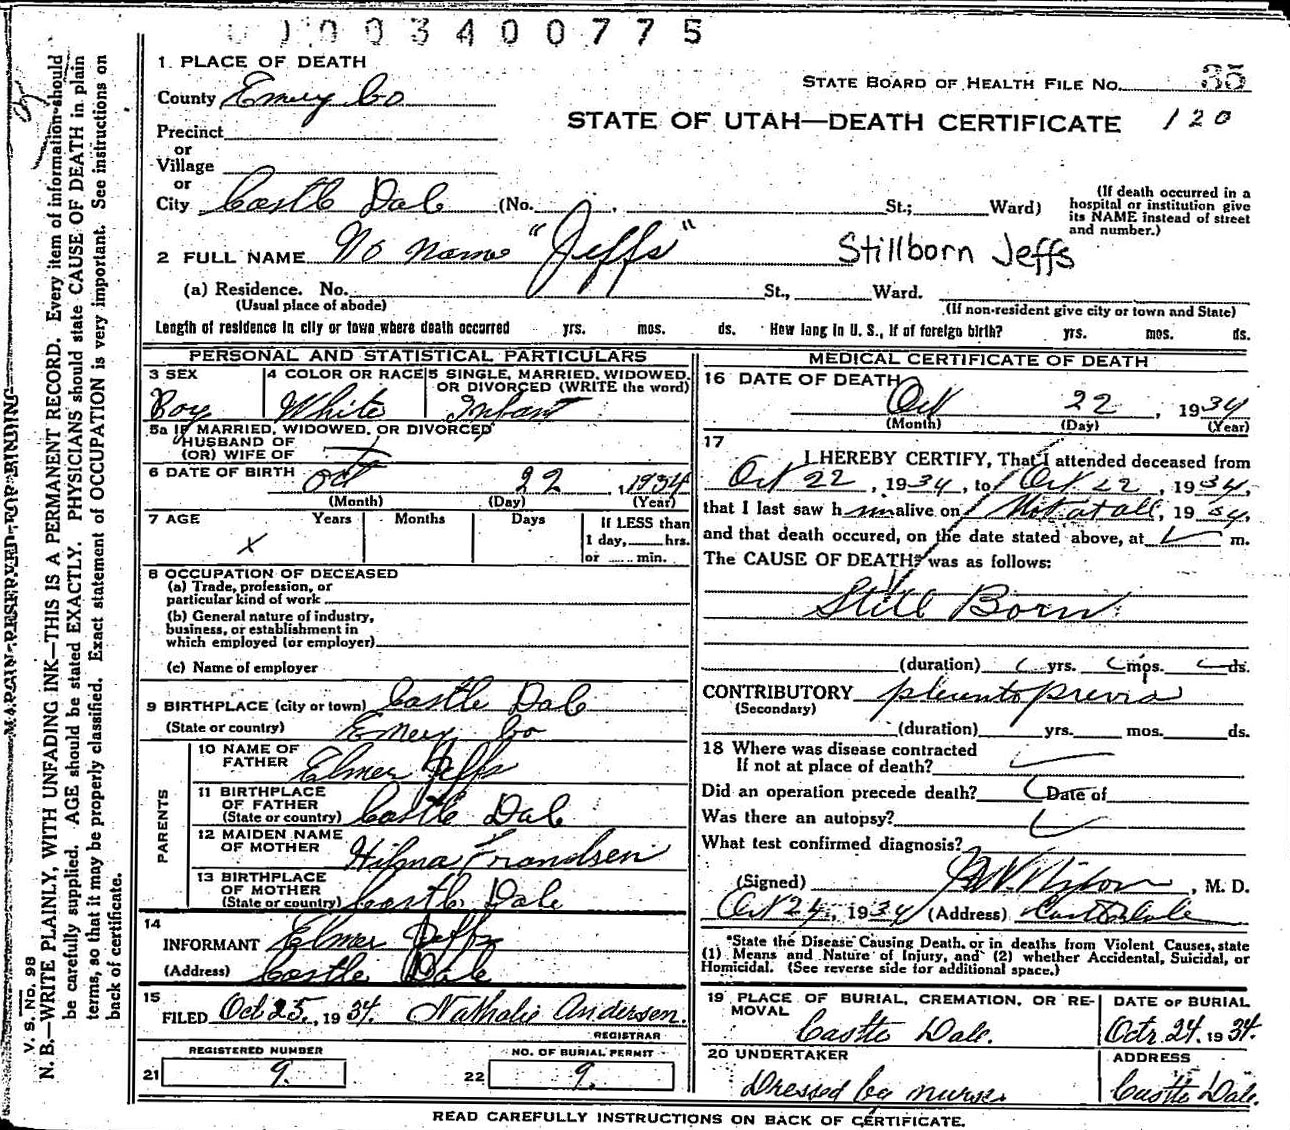 003400775
1 PLACE OF DEATH
County Emery Co
STATE BOARD OF HEALTH FILE No. 35
STATE OF UTAH—DEATH CERTIFICATE 120
Precinct
or
Village
or
City Castle Dale (No. , St.; Ward)
(If death occurred in a hospital or institution give its NAME instead of street and number.)
2 FULL NAME No name "Jeffs" Stillborn Jeffs
(a) Residence. No. St., Ward.
(Usual place of abode) (If non-resident give city or town and State)
Length of residence in city or town where death occurred yrs. mos. ds. How long in U. S., if of foreign birth? yrs. mos. ds.
PERSONAL AND STATISTICAL PARTICULARS
3 SEX Boy
4 COLOR OR RACE White
5 SINGLE, MARRIED, WIDOWED, OR DIVORCED (WRITE the word) Infant
5a IF MARRIED, WIDOWED, OR DIVORCED
HUSBAND OF
(OR) WIFE OF
6 DATE OF BIRTH Oct 22, 1934
(Month) (Day) (Year)
7 AGE Years Months Days If LESS than
x 1 day, hrs.
or min.
8 OCCUPATION OF DECEASED
(a) Trade, profession, or
particular kind of work
(b) General nature of industry,
business, or establishment in
which employed (or employer)
(c) Name of employer
9 BIRTHPLACE (city or town) Castle Dale
(State or country) Emery Co
PARENTS
10 NAME OF FATHER Elmer Jeffs
11 BIRTHPLACE OF FATHER (State or country) Castle Dale
12 MAIDEN NAME OF MOTHER Hilma Frandsen
13 BIRTHPLACE OF MOTHER (State or country) Castle Dale
14
INFORMANT Elmer Jeffs
(Address) Castle Dale
15
FILED Oct 25, 1934. Nathalie Andersen.
REGISTRAR
REGISTERED NUMBER
21 9.
NO. OF BURIAL PERMIT
22 9.
MEDICAL CERTIFICATE OF DEATH
16 DATE OF DEATH
Oct 22, 1934
(Month) (Day) (Year)
17
I HEREBY CERTIFY, That I attended deceased from
Oct 22, 1934, to Oct 22, 1934,
that I last saw him alive on Not at all, 1934,
and that death occured, on the date stated above, at m.
The CAUSE OF DEATH* was as follows:
Still Born
(duration) yrs. mos. ds.
CONTRIBUTORY
(Secondary)
(duration) yrs. mos. ds.
18 Where was disease contracted
If not at place of death?
Did an operation precede death? Date of
Was there an autopsy?
What test confirmed diagnosis?
(Signed) , M. D.
Oct 24, 1934 (Address) Castle Dale
*State the Disease Causing Death, or in deaths from Violent Causes, state
(1) Means and Nature of Injury, and (2) whether Accidental, Suicidal, or
Homicidal. (See reverse side for additional space.)
19 PLACE OF BURIAL, CREMATION, OR REMOVAL
Castle Dale.
DATE OF BURIAL
Octr 24. 1934.
20 UNDERTAKER
Dressed by nurse.
ADDRESS
Castle Dale.
READ CAREFULLY INSTRUCTIONS ON BACK OF CERTIFICATE.
MARGIN RESERVED FOR BINDING
V. S. No. 98
N. B.—WRITE PLAINLY, WITH UNFADING INK—THIS IS A PERMANENT RECORD. Every item of information should
be carefully supplied. AGE should be stated EXACTLY. PHYSICIANS should state CAUSE OF DEATH in plain
terms, so that it may be properly classified. Exact statement of OCCUPATION is very important. See instructions on
back of certificate.